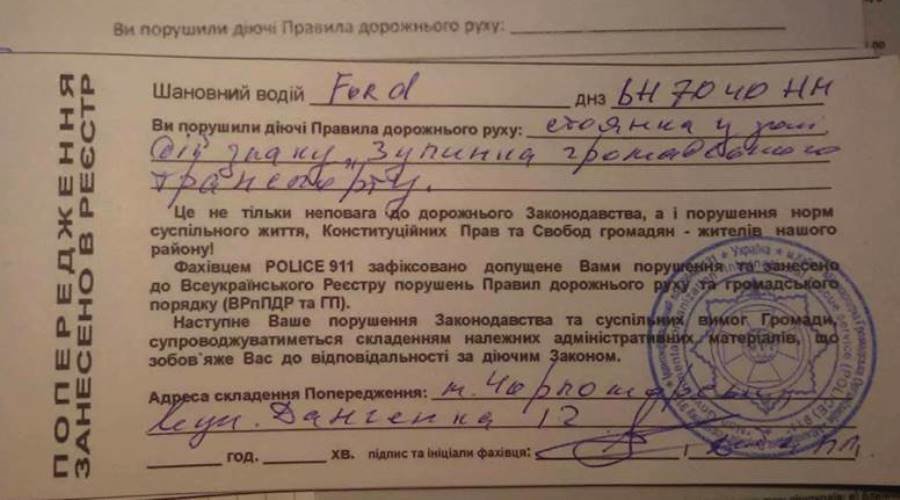 Ви порушили діючі Правила дорожнього руху:
ПОПЕРЕДЖЕННЯ
ЗАНЕСЕНО В РЕЄСТР
Шановний водій Ford днз ВН 7040 НН
Ви порушили діючі Правила дорожнього руху: стоянка у зоні
дії знаку "Зупинка громадського
транспорту.
Це не тільки неповага до дорожнього Законодавства, а і порушення норм
суспільного життя, Конституційних Прав та Свобод громадян - жителів нашого
району!
Фахівцем POLICE 911 зафіксовано допущене Вами порушення та занесено
до Всеукраїнського Реєстру порушень Правил дорожнього руху та громадського
порядку (ВРпПДР та ГП).
Наступне Ваше порушення Законодавства та суспільних вимог Громади,
супроводжуватиметься складенням належних адміністративних матеріалів, що
зобов'яже Вас до відповідальності за діючим Законом.
Адреса складення Попередження: м.
12
год. хв. підпис та ініціали фахівця:
Україна